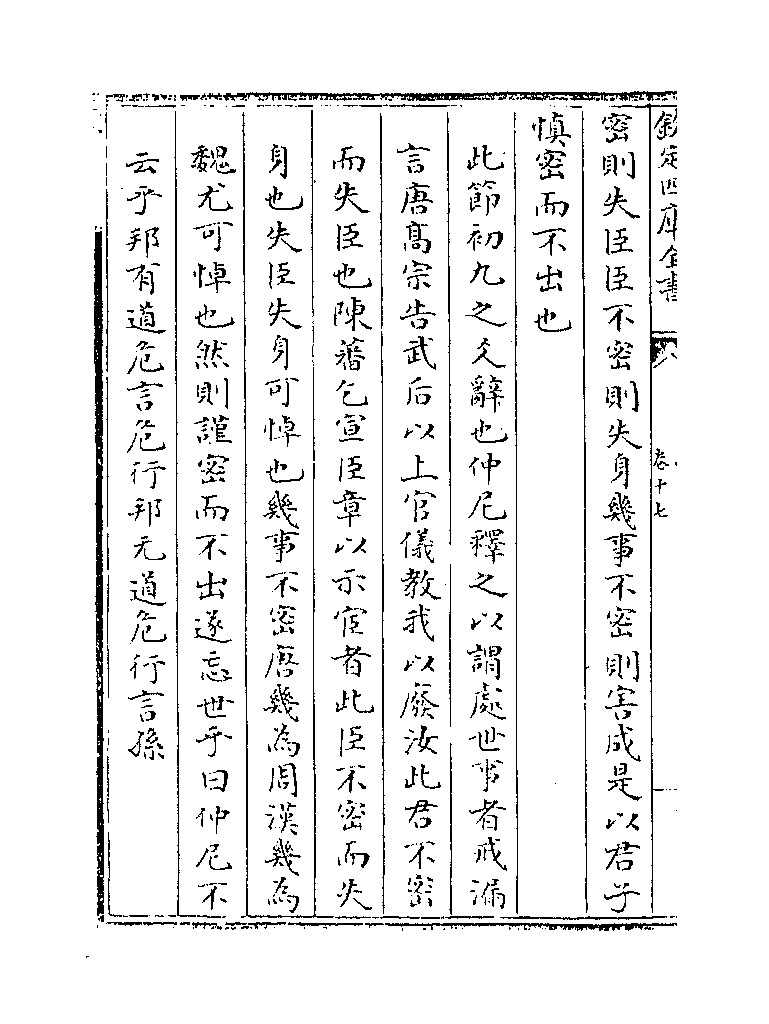 欽定四庫全書
卷十七
密則失臣臣不密則失身幾事不密則害成是以君子
慎密而不出也
此節初九之爻辭也仲尼釋之以謂處世事者戒漏
言唐髙宗告武后以上官儀教我以廢汝此君不密
而失臣也陳蕃乞宣臣章以示宦者此臣不密而失
身也失臣失身可悼也幾事不密唐幾為周漢幾為
魏尤可悼也然則謹密而不出遂忘世乎曰仲尼不
云乎邦有道危言危行邦无道危行言孫